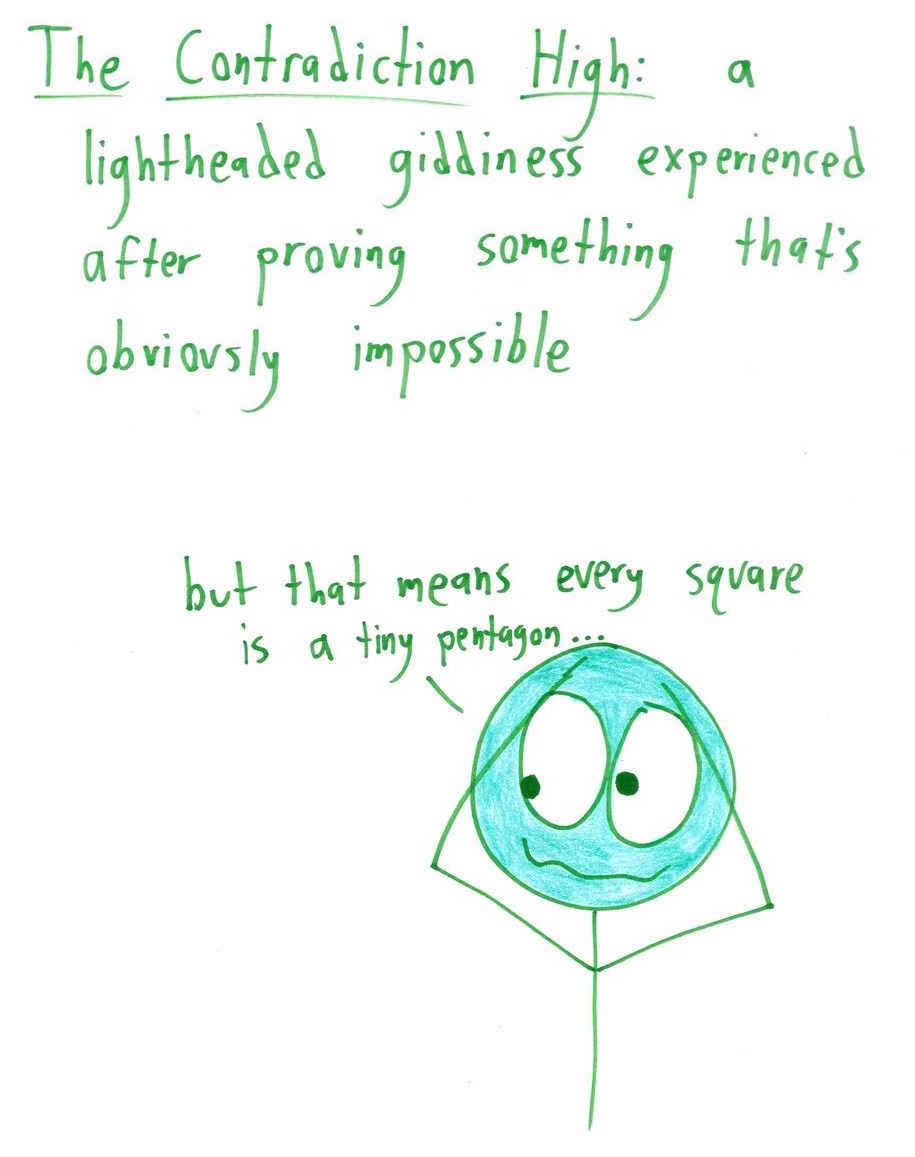 The Contradiction High: a
lightheaded giddiness experienced
after proving something that's
obviously impossible
but that means every square
is a tiny pentagon...